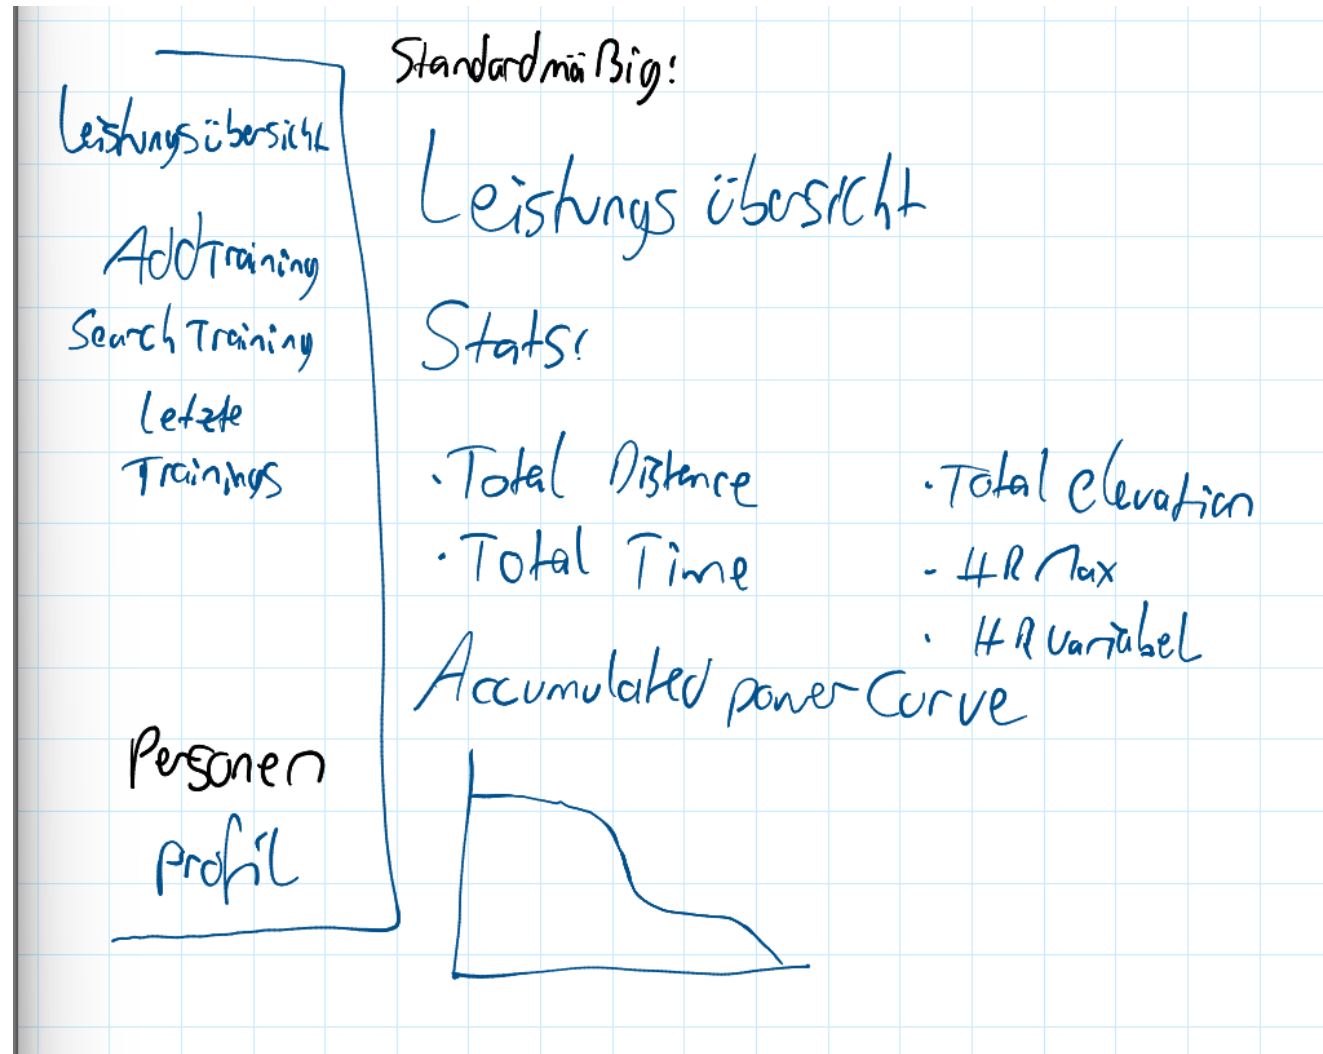 Leistungsübersicht
Add Training
Search Training
letzte
Trainings
Personen
Profil
Standardmäßig:
Leistungsübersicht
Stats:
· Total Distance
· Total Time
· Total elevation
- HR Max
· HR Variabel
Accumulated power Curve